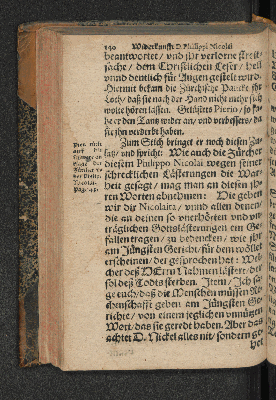 190 Widerkunfft D. Philippi Nicolai
beantwortet / vnd jhr verlorne streit-
sache / dem Christlichen Leser / hell
vnnd deutlich für Augen gestelt wird.
Hiermit bekam die Zürchische
Loth / daß sie nach der Hand nicht mehr sich
wolte hören lassen. Pierio / so
be er den Tantz wider an / vnd verbessers / da
sie jhn verderbt haben.
Zum Stich bringet er noch diesen Zu-
satz / vnd spricht: Wie auch die Zürcher
diesem Philippo Nicolai wegen seiner
schrecklichen Lästerungen die War-
heit gesagt / mag man an diesen jh-
ren Worten abnehmen: Die geben
wir dir Nicolaita / vnd allen denen /
die an deinen so vnerhörten vnd vn-
träglichen Gottslästerungen ein Ge-
fallen tragen / zu bedencken / wie jhr
am Jüngsten Gericht / für dem wöllet
erscheinen / der gesprochen hat: Wel-
cher deß HErrn Nahmen lästert / der
sol deß Todts sterben. Item / Ich sa-
ge euch / daß die Menschen müssen Re-
chenschafft geben am Jüngsten Ge-
richte / von einem jeglichen vnnützen
Wort / das sie geredt haben. Aber das
achtet D. Nickel alles nit / sondern ge-
het